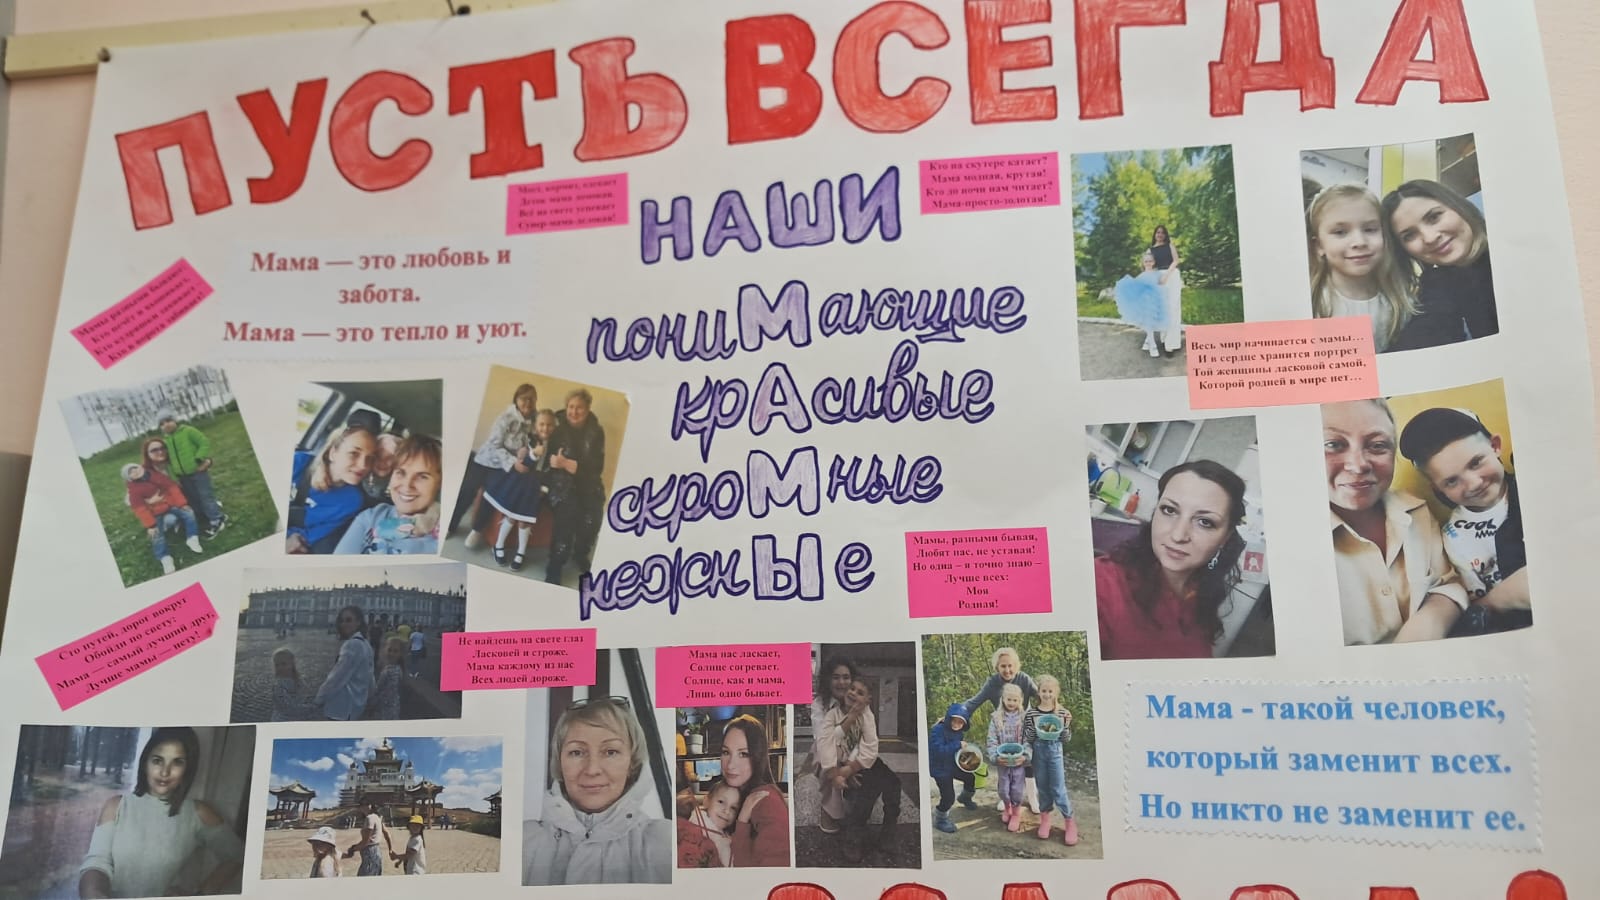 ПУСТЬ ВСЕГДА
НАШИ
пониМающие
крАсивые
скроМные
нежнЫе
Моет, кормит, одевает
Деток мама деловая.
Всё на свете успевает
Супер-мама-деловая!
Кто на скутере катает?
Мама модная, крутая!
Кто до ночи нам читает?
Мама-просто-золотая!
Мама — это любовь и
забота.
Мама — это тепло и уют.
Мамы разными бывают:
Кто печёт и вышивает,
Весь мир начинается с мамы…
И в сердце хранится портрет
Той женщины ласковой самой,
Которой родней в мире нет…
Мамы, разными бывая,
Любят нас, не уставая!
Но одна – я точно знаю –
Лучше всех:
Моя
Родная!
COOL
Сто путей, дорог вокруг
Обойди по свету:
Мама — самый лучший друг,
Лучше мамы — нету!
Не найдешь на свете глаз
Ласковей и строже.
Мама каждому из нас
Всех людей дороже.
Мама нас ласкает,
Солнце согревает.
Солнце, как и мама,
Лишь одно бывает.
Мама - такой человек,
который заменит всех.
Но никто не заменит ее.